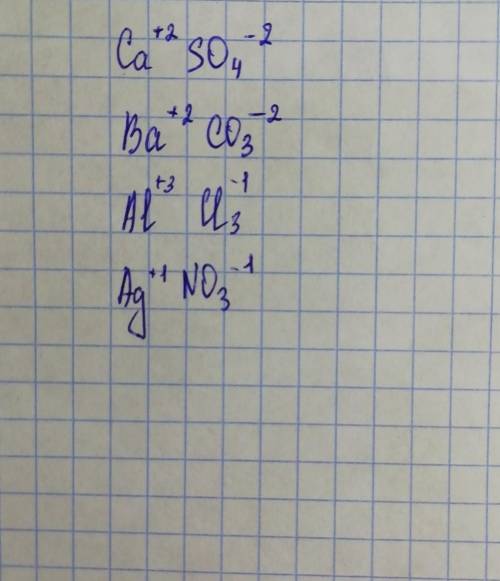 Ca⁺² SO₄⁻²
Ba⁺² CO₃⁻²
Al⁺³ Cl₃⁻¹
Ag⁺¹ NO₃⁻¹